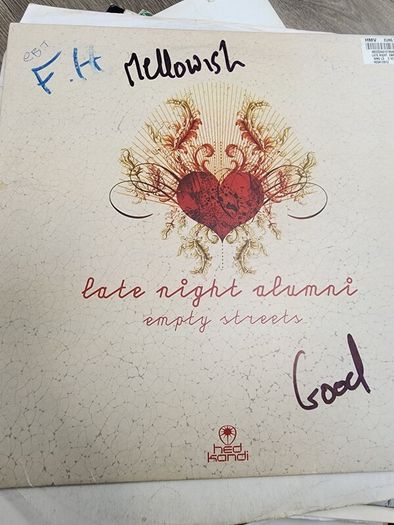 HMV
F.H Mellowish
late night alumni
empty streets
Good
hed
kandi